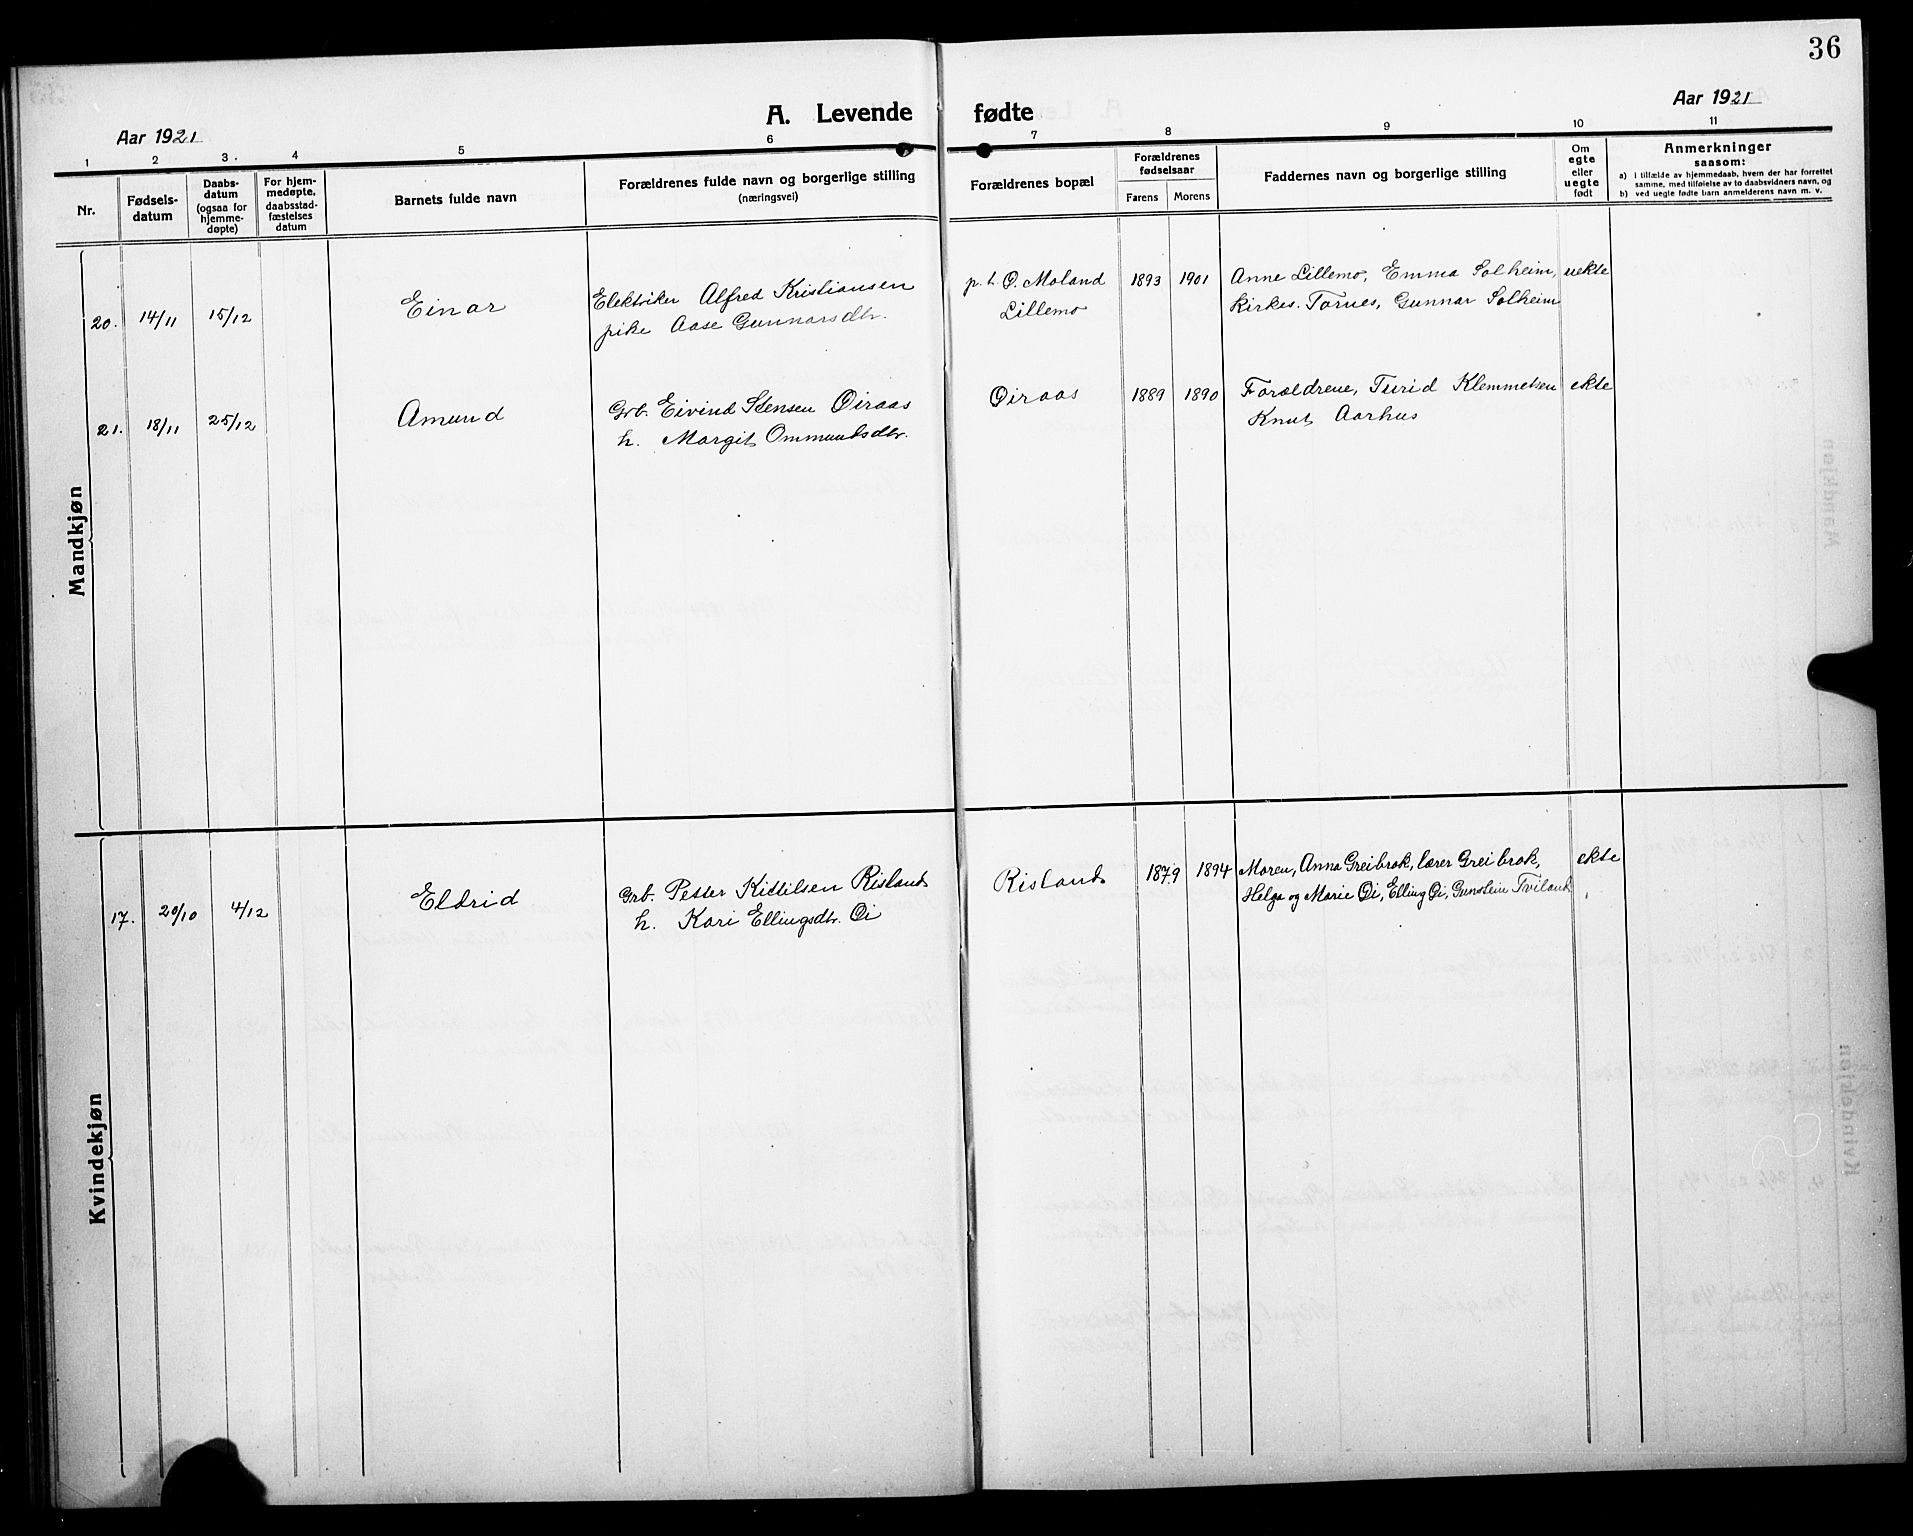 36
A. Levende fødte
Aar 1921
Aar 1921
1 2 3. 4 5 6 7 8 9 10 11
Nr.
Fødsels-
datum
Daabs-
datum
(ogsaa for
hjemme-
døpte)
For hjem-
medøpte,
daabsstad-
fæstelses
datum
Barnets fulde navn
Forældrenes fulde navn og borgerlige stilling
(næringsvei)
Forældrenes bopæl
Forældrenes
fødselsaar
Farens Morens
Faddernes navn og borgerlige stilling
Om
egte
eller
uegte
født
Anmerkninger
saasom:
a) i tilfælde av hjemmedaab, hvem der har forrettet
samme, med tilføielse av to daabsvidners navn, og
b) ved uegte fødte barn anmelderens navn m. v.
Mandkjøn
20. 14/11 15/12 Einar Elektriker Alfred Kristiansen p. t. O. Moland 1893 1901 Anne Lillemo, Emma Solheim, uekte
pike Aase Gunnarsdtr. Lillemo Kirkes. Tornes, Gunnar Solheim
21. 18/11 25/12 Amund Grb. Eivind Stensen Øiraas Øiraas 1889 1890 Forældrene, Turid Klemmetsen ekte
h. Margit Ommundsdtr. Knut Aarhus
Kvindekjøn
17. 20/10 4/12 Eldrid Grb. Petter Kittilsen Risland Risland 1879 1894 Moren, Anna Greibrok, lærer Greibrok, ekte
h. Kari Ellingsdtr. Øi Helga og Marie Øi, Elling Øi, Gunstein Tviland